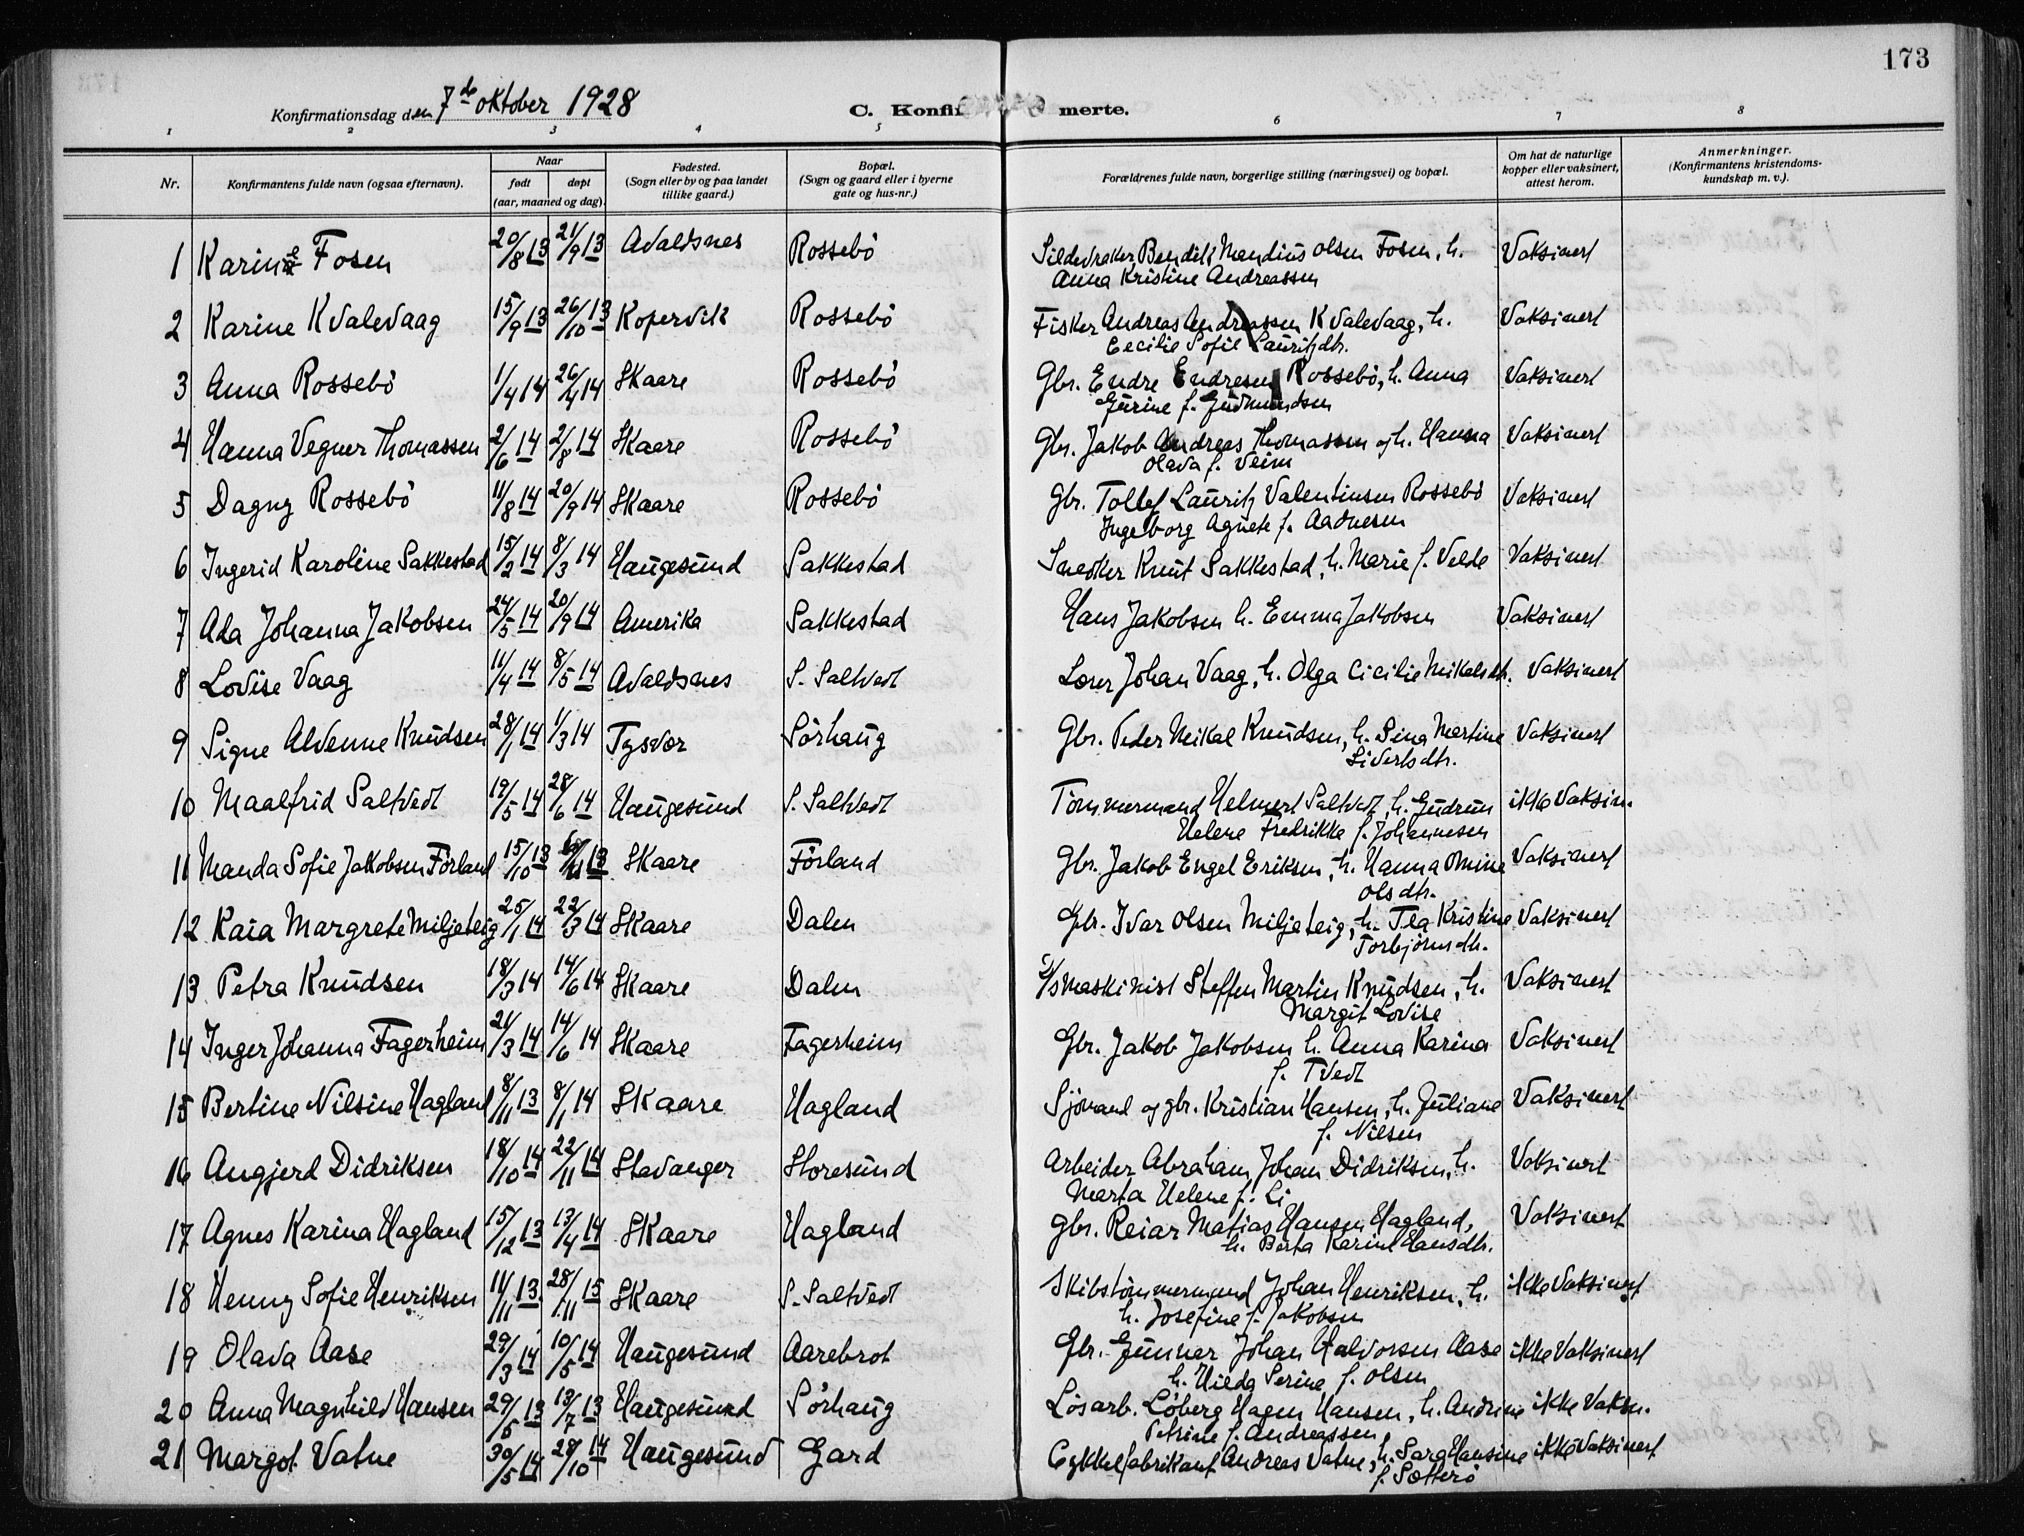 173
Konfirmationsdag den 7de oktober 1928
C. Konfirmerte.
1 2 3 4 5 6 7 8
Nr. Konfirmantens fulde navn (ogsaa efternavn). Naar født døpt (aar, maaned og dag). Fødested. (Sogn eller by og paa landet tillike gaard.) Bopæl. (Sogn og gaard eller i byerne gate og hus-nr.) Forældrenes fulde navn, borgerlige stilling (næringsvei) og bopæl. Om hat de naturlige kopper eller vaksinert, attest herom. Anmerkninger. (Konfirmantens kristendoms-kundskap m. v.).
1 Karine Fosen 20/8 13 21/9 13 Avaldsnes Rossebö Sildevraker Bendik Mandius Olsen Fosen, h. Vaksinert
Anna Kristine Andreassen
2 Karine Kvalevaag 15/9 13 26/10 13 Kopervik Rossebö Fisker Andreas Andreassen Kvalevaag, h. Vaksinert
Cecilie Sofie Lauritzdtr.
3 Anna Rossebö 1/4 14 26/4 14 Skaare Rossebö Gbr. Endre Endresen Rossebö, h. Anna Vaksinert
Gurine f. Gudmundsen
4 Hanna Vegner Thomassen 2/6 14 2/8 14 Skaare Rossebö Gbr. Jakob Andreas Thomassen og h. Hanna Vaksinert
Olava f. Veim
5 Dagny Rossebö 11/8 14 20/9 14 Skaare Rossebö Gbr. Tollef Lauritz Valentinsen Rossebö Vaksinert
Ingeborg Agnete f. Aadnesen
6 Ingerid Karoline Sakkestad 15/2 14 8/3 14 Haugesund Sakkestad Snedker Knut Sakkestad, h. Marie f. Velde Vaksinert
7 Ada Johanna Jakobsen 24/5 14 20/9 14 Amerika Sakkestad Hans Jakobsen h. Emma Jakobsen Vaksinert
8 Lovise Vaag 11/4 14 8/5 14 Avaldsnes S. Saltvedt Loser Johan Vaag, h. Olga Cicilie Mikalsdtr. Vaksinert
9 Signe Alvenne Knudsen 28/1 14 1/3 14 Tysvær Sörhaug Gbr. Peder Mikal Knudsen, h. Sina Martine Vaksinert
Sivertsdtr.
10 Maalfrid Saltvedt 19/5 14 28/6 14 Haugesund S. Saltvedt Tömmermand Helmert Saltvedt, h. Gudrun ikke Vaksin.
Helene Fredrikke f. Johannesen
11 Manda Sofie Jakobsen Förland 15/10 13 13 Skaare Förland Gbr. Jakob Engel Eriksen, h. Hanna Omine Vaksinert
Olsdtr.
12 Kaia Margrete Miljeteig 25/1 14 22/3 14 Skaare Dalen Gbr. Ivar Olsen Miljeteig, h. Tea Kristine Vaksinert
Torbjörnsdtr.
13 Petra Knudsen 18/3 14 14/6 14 Skaare Dalen Maskinist Steffen Martin Knudsen, h. Vaksinert
Margit Lovise
14 Inger Johanna Fagerheim 21/3 14 14/6 14 Skaare Fagerheim Gbr. Jakob Jakobsen h. Anna Karina Vaksinert
f. Tvedt
15 Bertine Nilsine Hagland 8/11 13 8/1 14 Skaare Hagland Sjömand og gbr. Kristian Hansen, h. Juliane Vaksinert
f. Nilsen
16 Angjerd Didriksen 18/10 14 22/11 14 Stavanger Storesund Arbeider Abraham Johan Didriksen, h. Vaksinert
Marta Helene f. Li
17 Agnes Karina Hagland 15/12 13 13/4 14 Skaare Hagland Gbr. Reiar Matias Hansen Hagland, Vaksinert
h. Berta Karine Hansdtr.
18 Henny Sofie Henriksen 11/11 13 28/11 15 Skaare S. Saltvedt Skibstömmermand Johan Henriksen, h. ikke Vaksinert
h. Josefine f. Jakobsen
19 Olava Aase 29/3 14 10/5 14 Haugesund Aarebrot Gbr. Gunnar Johan Halvorsen Aase ikke Vaksinert
h. Hilda Serine f. Olsen
20 Anna Magnhild Hansen 29/5 13 13/7 13 Haugesund Sörhaug Lösarb. Löberg Hagen Hansen, h. Andrine ikke Vaksn.
Petrine f. Andreassen
21 Margot Vatne 30/5 14 28/10 14 Haugesund Gard Cykkelfabrikant Andreas Vatne, h. Sara Hansine ikke Vaksinert
f. Sætterö